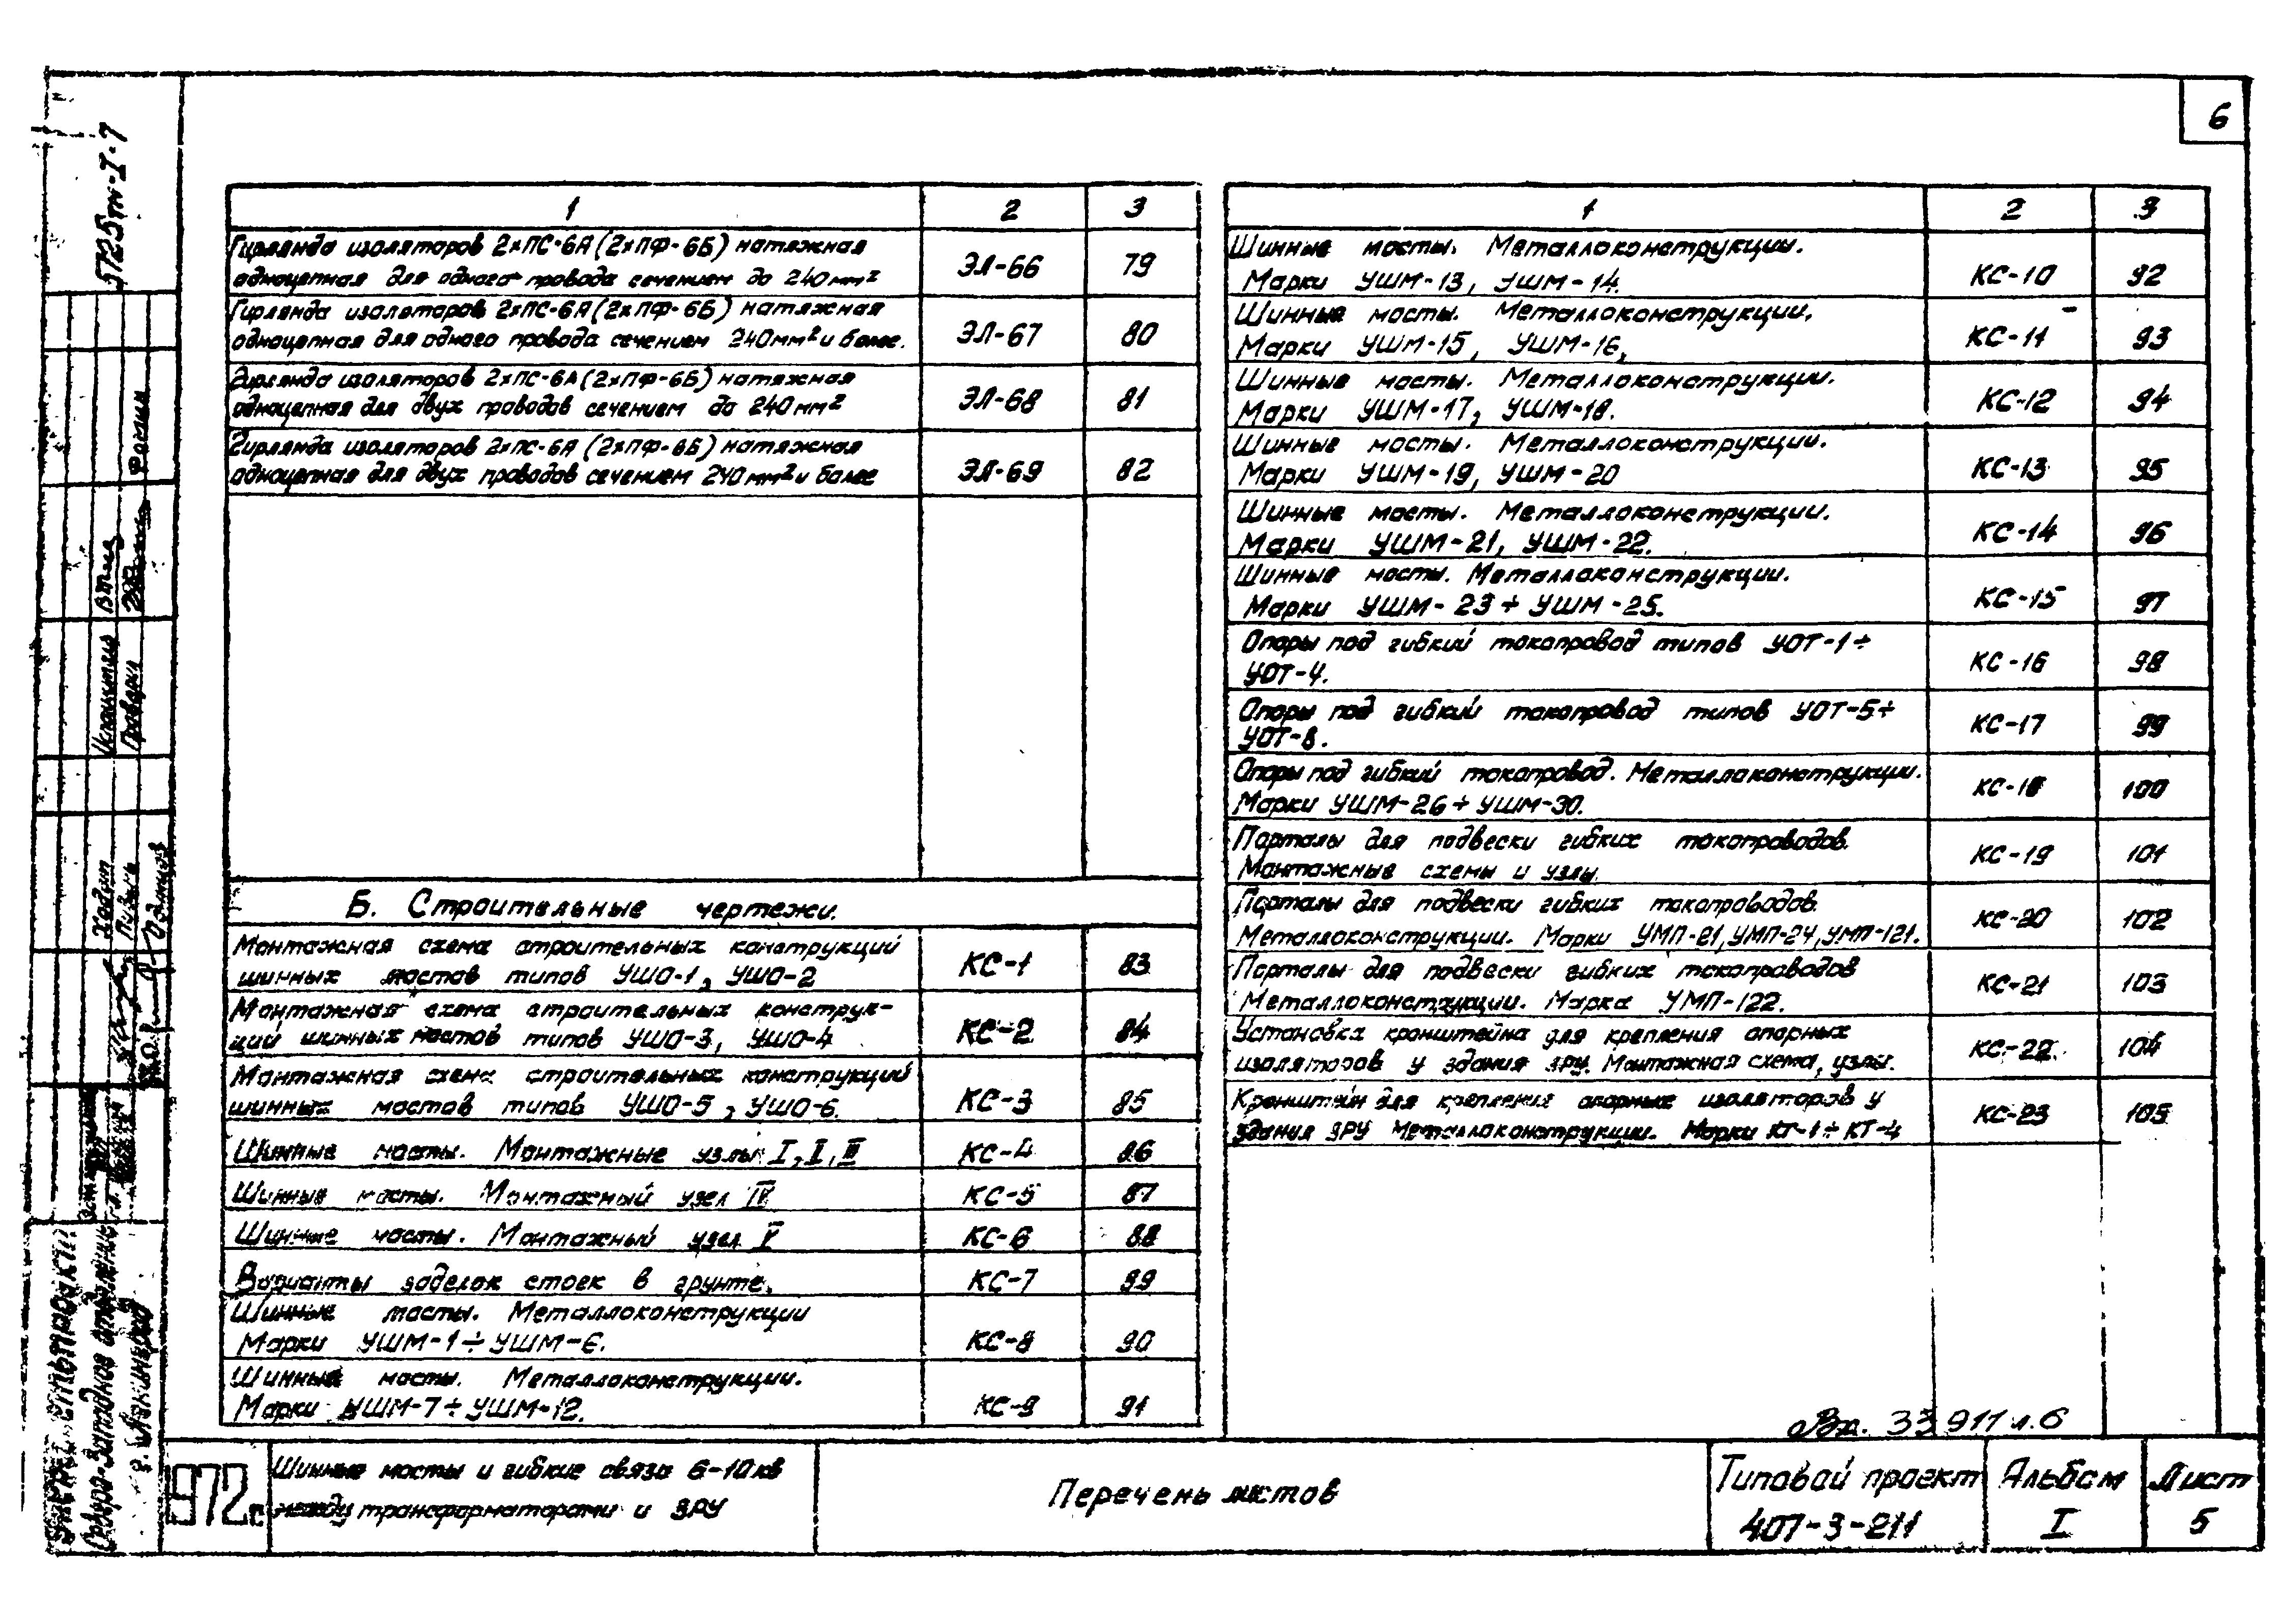 6
5725тм-I-7
1 2 3
Гирлянда изоляторов 2хПС-6А (2хПФ-6Б) натяжная
одноцепная для одного провода сечением до 240 мм² ЭЛ-66 79
Гирлянда изоляторов 2хПС-6А (2хПФ-6Б) натяжная
одноцепная для одного провода сечением 240мм² и более. ЭЛ-67 80
Гирлянда изоляторов 2хПС-6А (2хПФ-6Б) натяжная
одноцепная для двух проводов сечением до 240 мм² ЭЛ-68 81
Гирлянда изоляторов 2хПС-6А (2хПФ-6Б) натяжная
одноцепная для двух проводов сечением 240мм² и более ЭЛ-69 82
Б. Строительные чертежи.
Монтажная схема строительных конструкций
шинных мостов типов УШО-1, УШО-2 КС-1 83
Монтажная схема строительных конструк-
ций шинных мостов типов УШО-3, УШО-4 КС-2 84
Монтажная схема строительных конструкций
шинных мостов типов УШО-5, УШО-6. КС-3 85
Шинные мосты. Монтажные узлы I, II, III КС-4 86
Шинные мосты. Монтажный узел IV КС-5 87
Шинные мосты. Монтажный узел V КС-6 88
Варианты заделок стоек в грунте. КС-7 89
Шинные мосты. Металлоконструкции
Марки УШМ-1÷УШМ-6. КС-8 90
Шинные мосты. Металлоконструкции.
Марки УШМ-7÷УШМ-12. КС-9 91
1 2 3
Шинные мосты. Металлоконструкции.
Марки УШМ-13, УШМ-14. КС-10 92
Шинные мосты. Металлоконструкции.
Марки УШМ-15, УШМ-16, КС-11 93
Шинные мосты. Металлоконструкции.
Марки УШМ-17, УШМ-18. КС-12 94
Шинные мосты. Металлоконструкции.
Марки УШМ-19, УШМ-20 КС-13 95
Шинные мосты. Металлоконструкции.
Марки УШМ-21, УШМ-22. КС-14 96
Шинные мосты. Металлоконструкции.
Марки УШМ-23÷УШМ-25. КС-15 97
Опоры под гибкий токопровод типов УОТ-1÷
УОТ-4. КС-16 98
Опоры под гибкий токопровод типов УОТ-5÷
УОТ-8. КС-17 99
Опоры под гибкий токопровод. Металлоконструкции.
Марки УШМ-26÷УШМ-30. КС-18 100
Порталы для подвески гибких токопроводов.
Монтажные схемы и узлы. КС-19 101
Порталы для подвески гибких токопроводов.
Металлоконструкции. Марки УМП-21, УМП-24, УМП-121. КС-20 102
Порталы для подвески гибких токопроводов
Металлоконструкции. Марка УМП-122. КС-21 103
Установка кронштейна для крепления опорных
изоляторов у здания ЗРУ. Монтажная схема, узлы. КС-22 104
Кронштейн для крепления опорных изоляторов у
здания ЗРУ Металлоконструкции. Марки КТ-1÷КТ-4 КС-23 105
33911 л.6
1972г.
Шинные мосты и гибкие связи 6-10кв
между трансформаторами и ЗРУ
Перечень листов
Типовой проект
407-3-211
Альбом
I
Лист
5